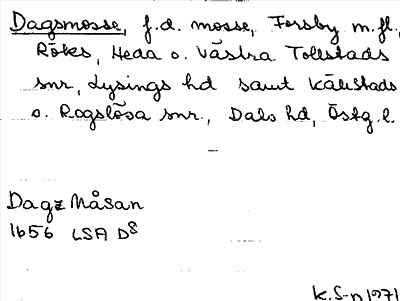 Dagsmosse, f.d. mosse, Forsby m.fl.,
Röks, Heda o. Västra Tollstads
snr, Lysings hd samt Källstads
o. Rogslösa snr., Dals hd, Östg.l.
—
Dagz Måsan
1656 LSA D8
K.S-n 1971